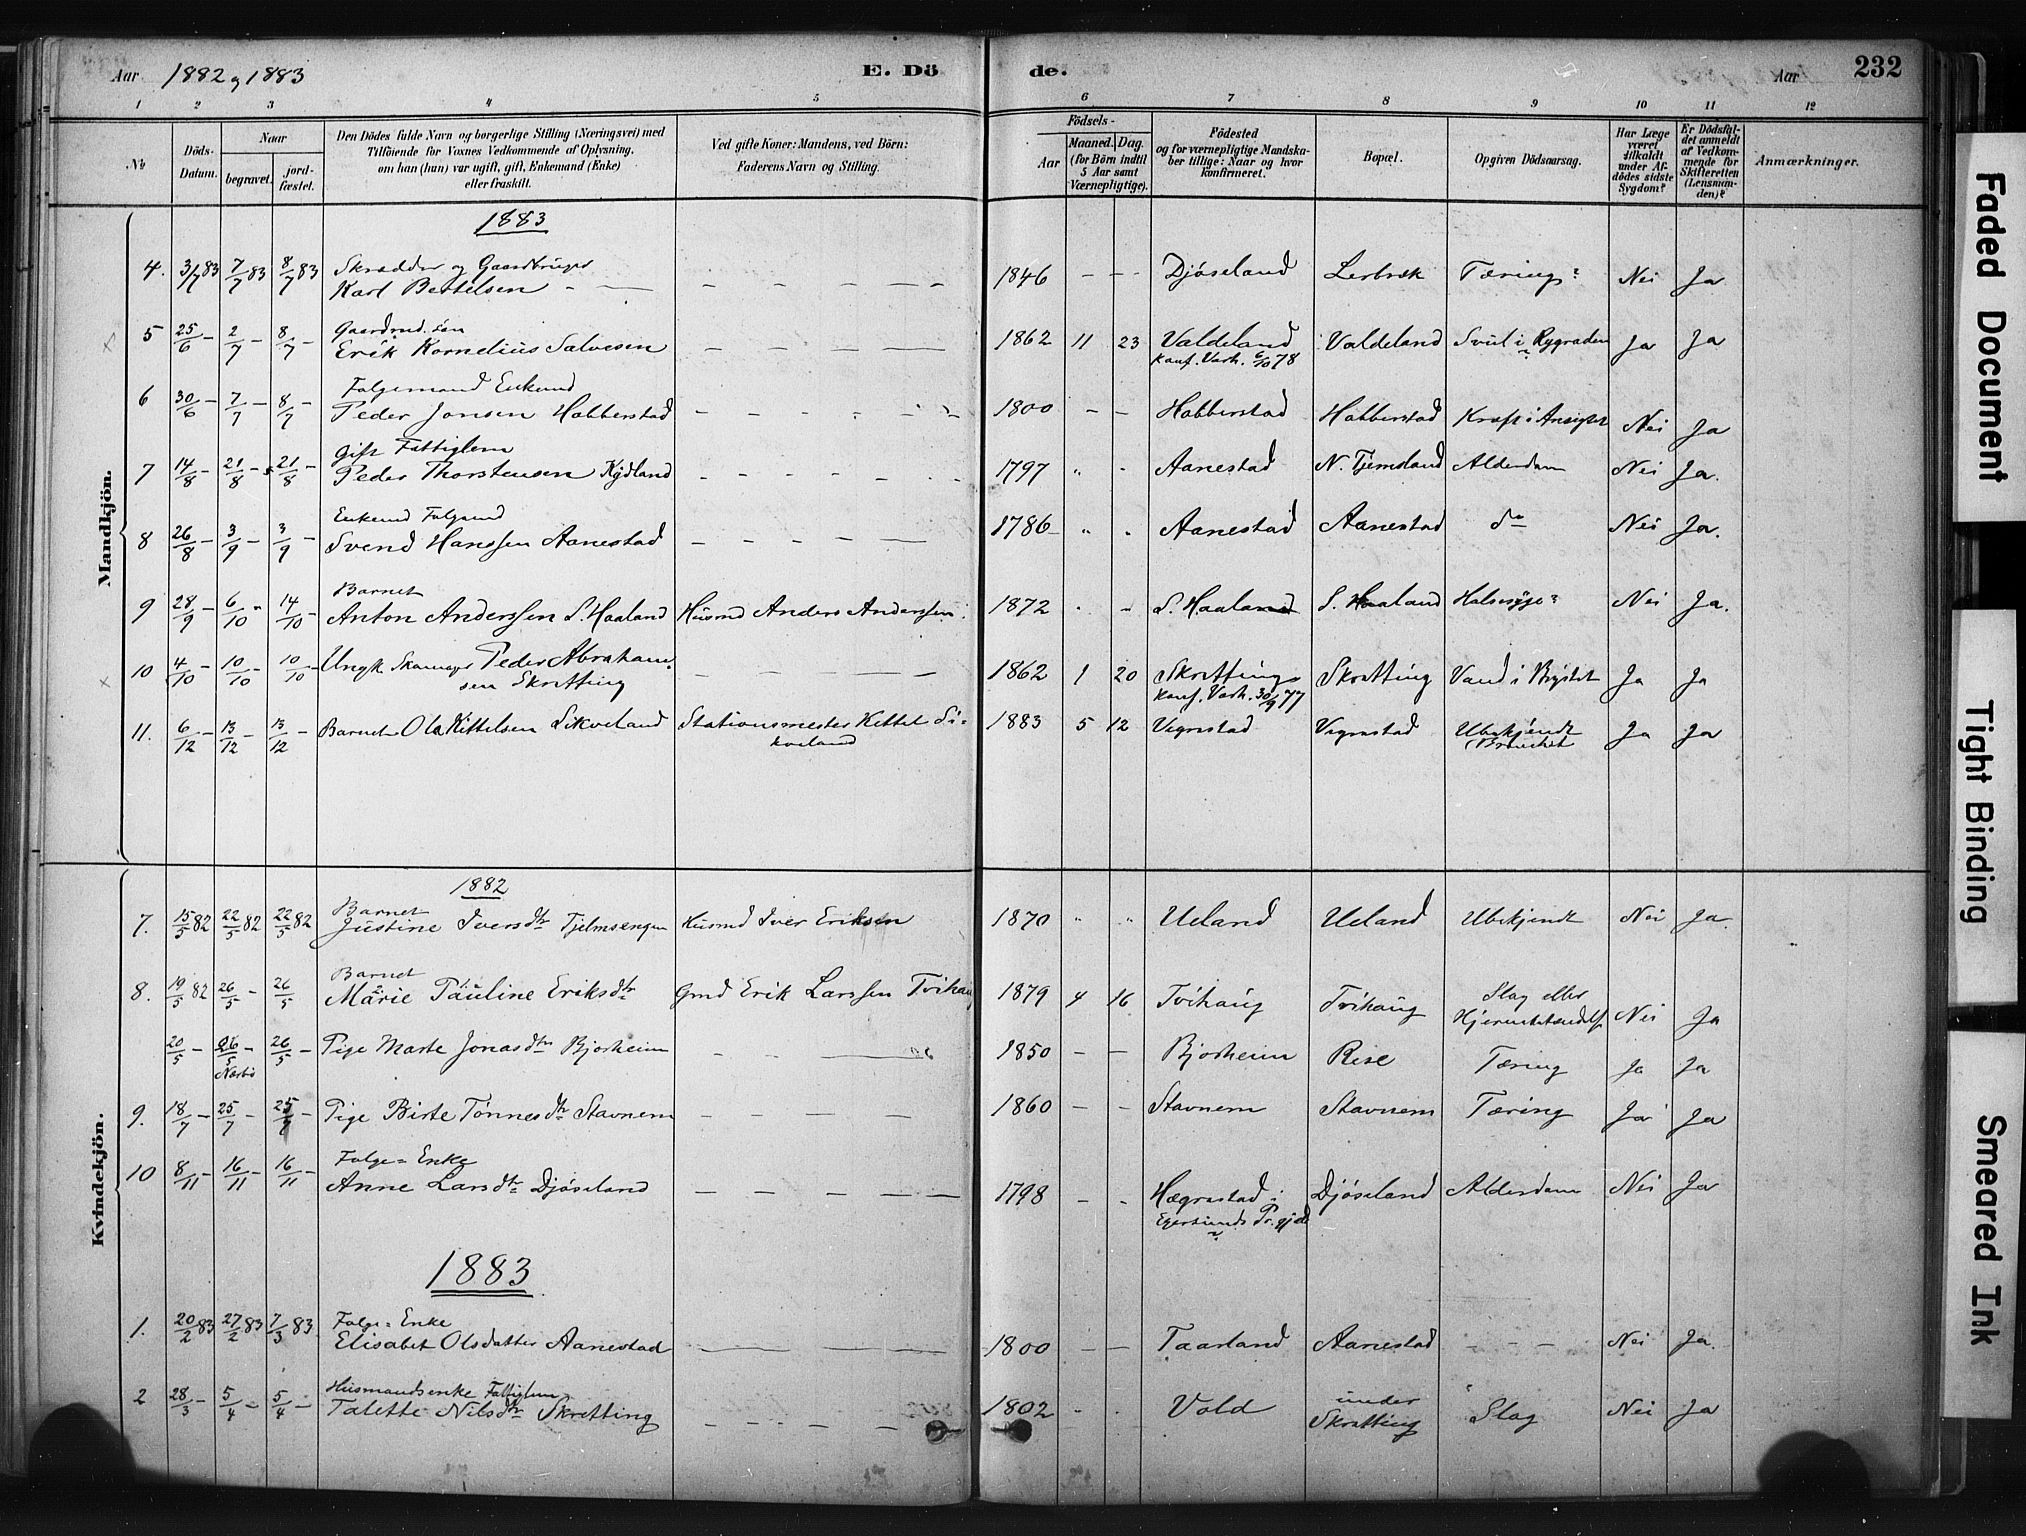 Aar 1882 og 1883 E. Dö de. Aar 232
1 2 3 4 5 6 7 8 9 10 11 12
№ Döds-Datum. Naar begravet. jordfæstet. Den Dödes fulde Navn og borgerlige Stilling (Næringsvei) med Tilföiende for Voxnes Vedkommende af Oplysning, om han (hun) var ugift, gift, Enkemand (Enke) eller fraskilt. Ved gifte Koner: Mandens, ved Börn: Faderens Navn og Stilling. Födsels- Aar Maaned. Dag. (for Börn indtil 5 Aar samt Værnepligtige). Födested og for værnepligtige Mandskaber tillige: Naar og hvor konfirmeret. Bopæl. Opgiven Dödsaarsag. Har Læge været tilkaldt under Afdödes sidste Sygdom? Er Dödsfaldet anmeldt af Vedkommende for Skifteretten (Lensmanden)? Anmærkninger.
Mandkjön.
1883
4. 3/7 83 7/7 83 8/7 83 Skrædder og Gaardbruger
Karl Bertelsen - — — — — — — 1846 — - - Djöseland Lerbræk Tæring? Nei Ja
5 25/6 — 2/7 — 8/7 — Gaardmd. sön
Erik Kornelius Salvesen — — — — — 1862 11 23 Valdeland Valdeland Svul i Rygraden Ja Ja
Konf. Varh. 6/10 78
6 30/6 — 7/7 — 8/7 — Folgemand Enkemd
Peder Jonsen Hobberstad — — — - - 1800 — — Hobberstad Hobberstad Kræft i Ansigtet Nei Ja
7 14/8 — 21/8 — 21/8 — Gift Fattiglem
Peder Thorstensen Kydland — — — — - - 1797 " - Aanestad N. Tjemsland Alderdom Nei Ja.
8 26/8 — 3/9 — 3/9 — Enkemd Folgemd
Svend Hanssen Aanestad — — — — — 1786 " . Aanestad Aanestad do Nei Ja.
9 28/9 — 6/10 " 14/10 — Barnet
Anton Anderssen S. Haaland Husmd Anders Anderssen. 1872 " " S. Haaland S. Haaland Halssyge? Nei Ja.
10 4/10 — 10/10 — 10/10 — Ungk. Skomager Peder Abraham-
sen Skretting — — — — — 1862 1 20 Skretting Skretting Vand i Brystet Ja Ja
Konf. Varh. 30/9 77
11. 6/12 — 13/12 — 13/12 — Barnet Ola Kittelsen Sikveland Stationsmester Kittel Si-
kveland 1883 5 12 Vigrestad Vigrestad Ubekjendt Ja Ja
Kvindekjön.
1882
7. 15/5 82 22/5 82 22/5 82 Barnet
Justine Iversdtr Tjelmsengen Husmd Iver Eriksen 1870 " " Ueland Ueland Ubekjendt Nei Ja.
8. 19/5 82 26/5 — 26/5 Barnet
Marie Pauline Eriksdtr Gmd Erik Larssen Tvihaug 1879 4 16 Tvihaug Tvihaug Slag eller
Nei Ja
20/5 — 26/5 — 26/5 — Pige Marte Jonasdtr Bjorheim - — — — 1850 — — Bjorheim Rise Tæring Ja Ja
Nærbö
9. 18/7 — 25/7 — 25/7 — Pige Birte Tönnesdtr Stavnem — — — — 1860 — — Stavnem Stavnem Tæring Ja Ja
10 8/11 — 16/11 — 16/11 — Folge = Enke
Anne Larsdtr Djöseland — — — — — — 1798 — - Hægrestad i Djöseland Alderdom Nei Ja
Egersunds Pr.gjæld
1883
1. 20/2 83 27/2 83 7/3 83 Folge = Enke
Elisabet Olsdatter Aanestad — — — — — 1800 — — Taarland Aanestad - - - Nei Ja.
2 28/3 — 5/4 — 5/4 — Husmandsenke Fattiglem
Talette Nilsdtr Skretting — — — - — 1802 - . Vold under Skretting Slag Nei Ja
Faded Document
Tight Binding
Smeared Ink